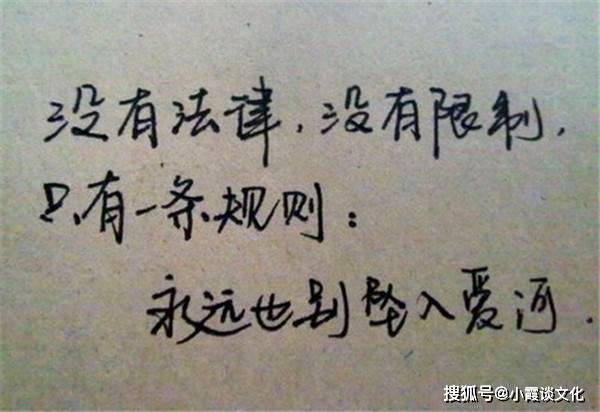 没有法律，没有限制，
只有一条规则：
永远也别坠入爱河．
搜狐号@小霞谈文化